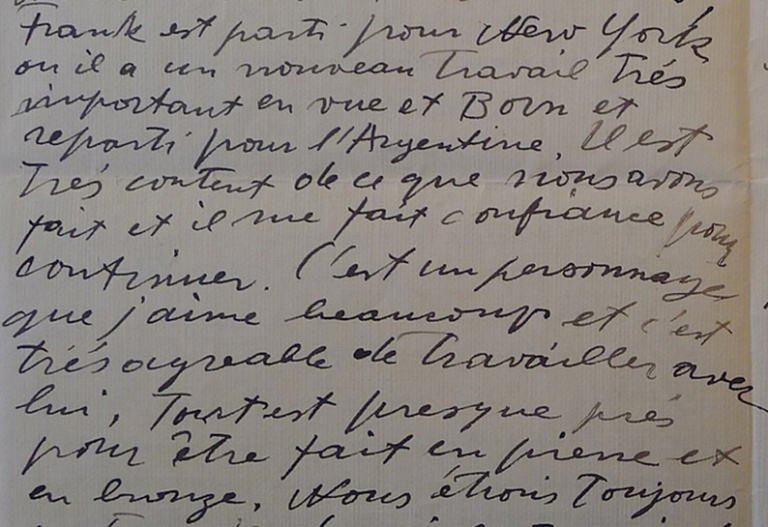 Frank est parti pour New York
ou il a un nouveau travail trés
important en vue et Born et
reparti pour l'Argentine. Il est
Trés content de ce que nous avons
fait et il me fait confiance pour
continuer. C'est un personnage
que j'aime beaucoup et c'est
trés agreable de travailler avec
lui, Tout est presque prés
pour être fait en pierre et
en bronze. Nous étions Toujours